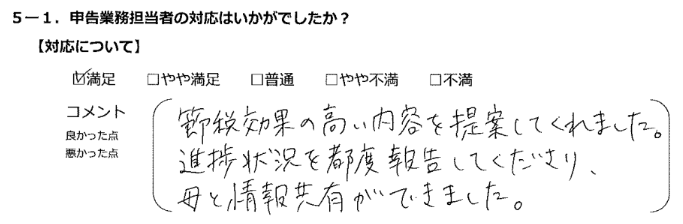 ５－１．申告業務担当者の対応はいかがでしたか？
【対応について】
☑満足 □やや満足 □普通 □やや不満 □不満
コメント
良かった点
悪かった点
節税効果の高い内容を提案してくれました。
進捗状況を都度報告してくださり、
母と情報共有ができました。